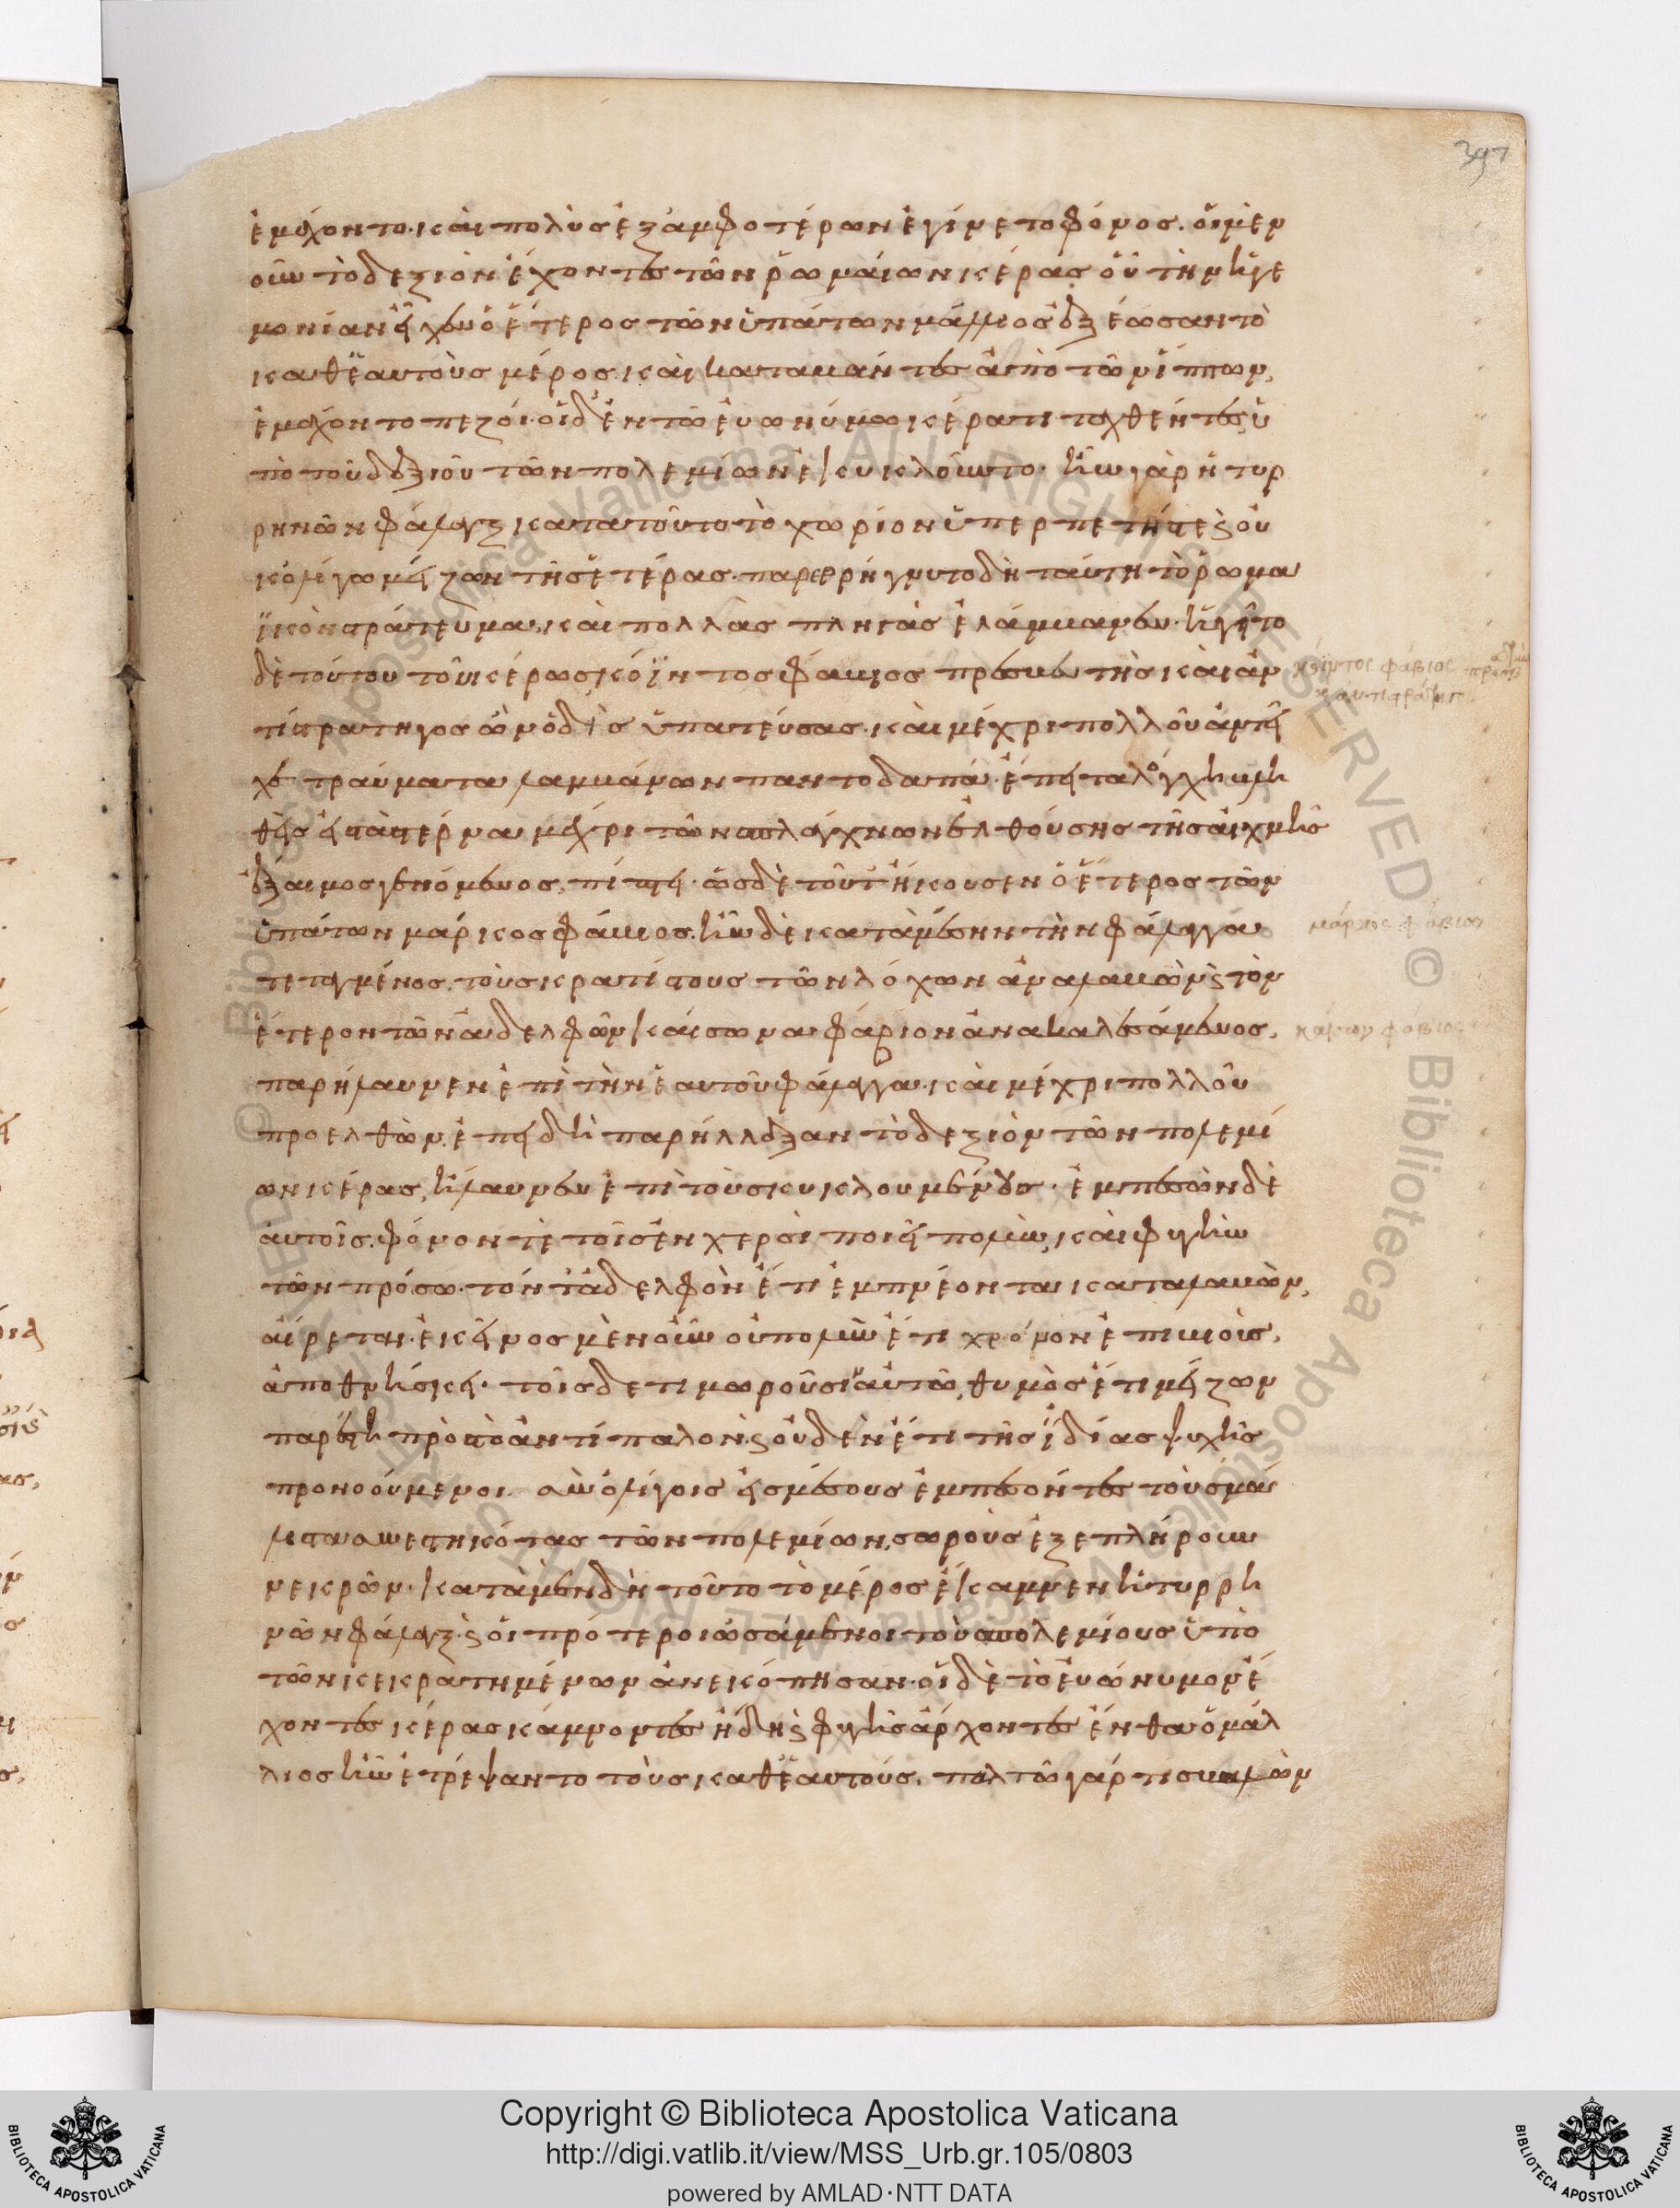 397
ἐμάχοντο· καὶ πολὺς ἐξ ἀμφοτέρων ἐγίνετο φόνος. οἱ μὲν
οὖν τὸ δεξιὸν ἔχοντες τῶν ῥωμαίων κέρας οὗ τὴν ἡγε
μονίαν εἶχεν ὁ ἕτερος τῶν ὑπάτων μάλλιος ἐξέωσαν τὸ
καθ ἑαυτοὺς μέρος· καὶ καταβάντες ἀπὸ τῶν ἵππων,
ἐμάχοντο πεζοί· οἱ δ ἐν τῶ εὐωνύμω κέρατι ταχθέντες ὑ
πὸ τοῦ δεξιοῦ τῶν πολεμίων ἐκυκλοῦντο· ἦν γὰρ ἡ τυρ
ρηνῶν φάλαγξ κατὰ τοῦτο τὸ χωρίον ὑπερπετής τε καὶ οὐ
κ ὀλίγω μείζων τῆς ἑτέρας· παρερρήγνυτο δὴ ταύτη τὸ ῥωμα
ϊκὸν στράτευμα, καὶ πολλὰς πληγὰς ἐλάμβανεν· ἡγεῖτο
δὲ τούτου τοῦ κέρως κόϊντος φάβιος πρεσβευτὴς καὶ ἀν
τιστράτηγος ὢν ὁ δὶς ὑπατεύσας· καὶ μέχρι πολλοῦ ἀντεῖ
χε τραύματα λαμβάνων παντοδαπά· ἔπειτα λόγχη βλη
θεὶς εἰς τὰ στέρνα μέχρι τῶν σπλάγχνων ἐλθούσης τῆς αἰχμῆς
ἔξαιμος γενόμενος, πίπτει· ὡς δὲ τοῦτ ἤκουσεν ὁ ἕτερος τῶν
ὑπάτων μάρκος φάβιος. ἦν δὲ κατὰ μέσην τὴν φάλαγγα
τεταγμένος, τοὺς κρατίστους τῶν λόχων ἀναλαβὼν καὶ τὸν
ἕτερον τῶν ἀδελφῶν καίσωνα φάβιον ἀνακαλεσάμενος,
παρήλαυνεν ἐπὶ τὴν ἑαυτοῦ φάλαγγα· καὶ μέχρι πολλοῦ
προελθὼν, ἐπειδὴ παρήλλαξαν τὸ δεξιὸν τῶν πολεμί
ων κέρας, ἤλαυνεν ἐπὶ τοὺς κυκλουμένους· ἐμπεσὼν δὲ
αὐτοῖς, φόνον τὲ τοῖς ἐν χερσὶ ποιεῖ πολὺν, καὶ φυγὴν
τῶν πρόσω· τόν τ ἀδελφὸν ἔτι ἐμπνέοντα καταλαβὼν,
αἴρεται· ἐκεῖνος μὲν οὖν οὐ πολὺν ἔτι χρόνον ἐπιβιοὺς,
ἀποθνήσκει· τοῖς δὲ τιμωροῦσιν αὐτῶ, θυμὸς ἔτι μείζων
παρέστη πρὸς τὸ ἀντίπαλον· καὶ οὐδὲν ἔτι τῆς ἰδίας ψυχῆς
προνοούμενοι. σὺν ὀλίγοις εἰς μέσους ἐμπεσόντες τοὺς μά
λιστα συνεστηκότας τῶν πολεμίων, σωροὺς ἐξεπλήρουν
νεκρῶν· κατὰ μὲν δὴ τοῦτο τὸ μέρος ἔκαμνεν ἡ τυρρη
νῶν φάλαγξ· καὶ οἱ πρότερον ὠσάμενοι τοὺς πολεμίους ὑπὸ
τῶν κεκρατημένων ἀνεκόπησαν· οἱ δὲ τὸ εὐώνυμον ἔ
χοντες κέρας κάμνοντες ἤδη καὶ φυγῆς ἄρχοντες ἔνθα ὁ μάλ
λιος ἦν ἐτρέψαντο τοὺς καθ ἑαυτούς. παλτῶ γάρ τις βαλὼν
κόϊντος φάβιος
μάρκος φάβιος
καίσων φάβιος
Copyright © Biblioteca Apostolica Vaticana
http://digi.vatlib.it/view/MSS_Urb.gr.105/0803
powered by AMLAD·NTT DATA
BIBLIOTECA APOSTOLICA VATICANA
BIBLIOTECA APOSTOLICA VATICANA